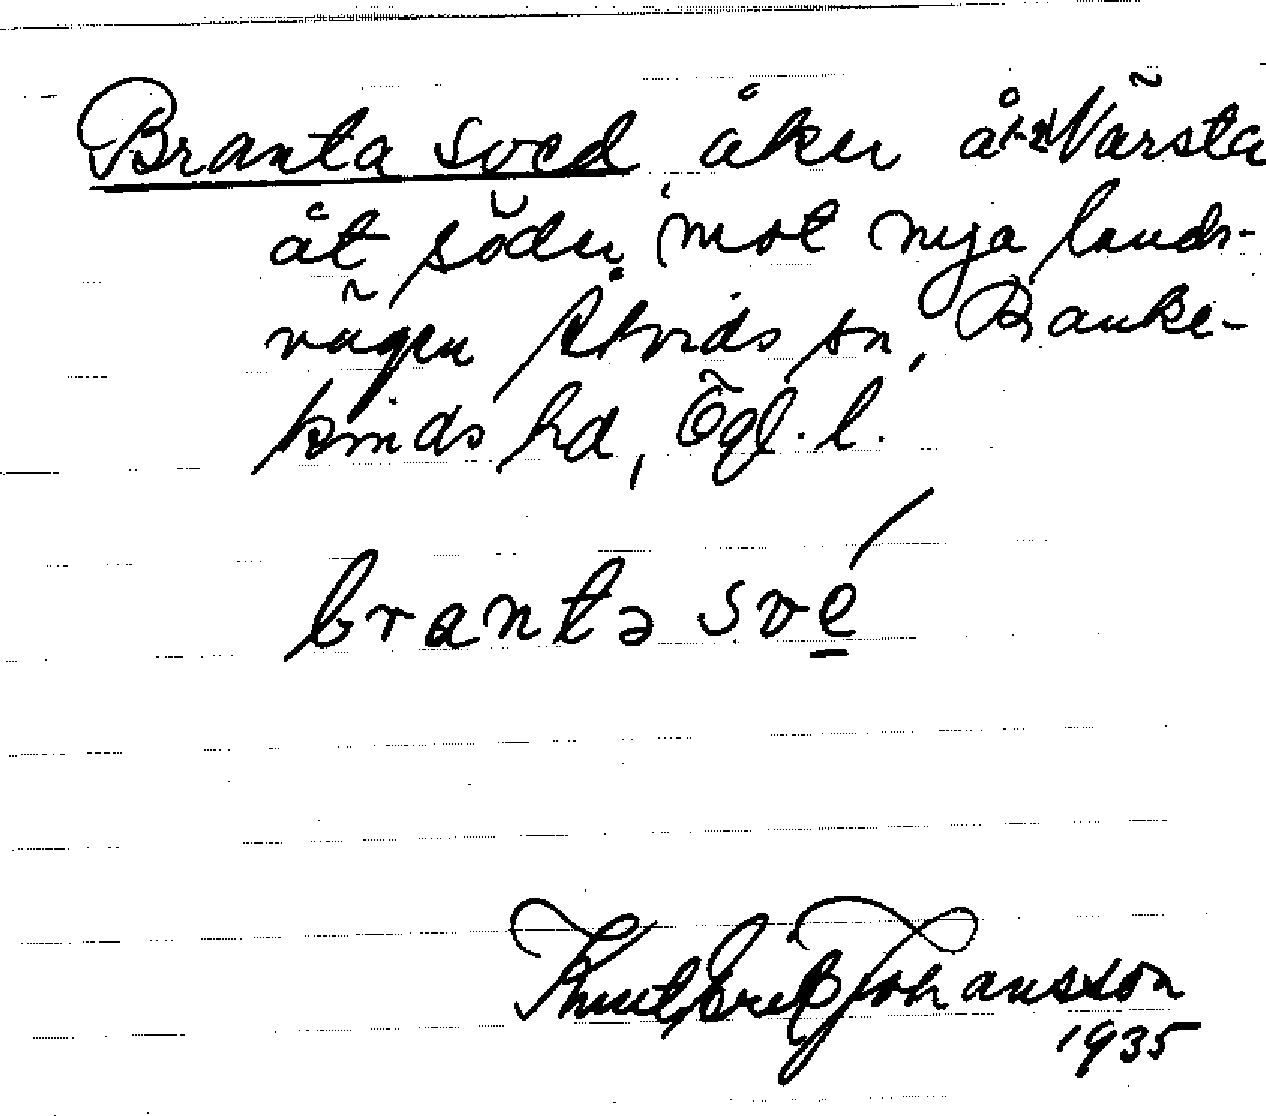 Branta sved, åker å Värsta
åt söder, mot nya lands-
vägen Åtvids sn, Banke-
kinds hd, Ögl. l.
brantə své
Knut Erik Johansson
1935